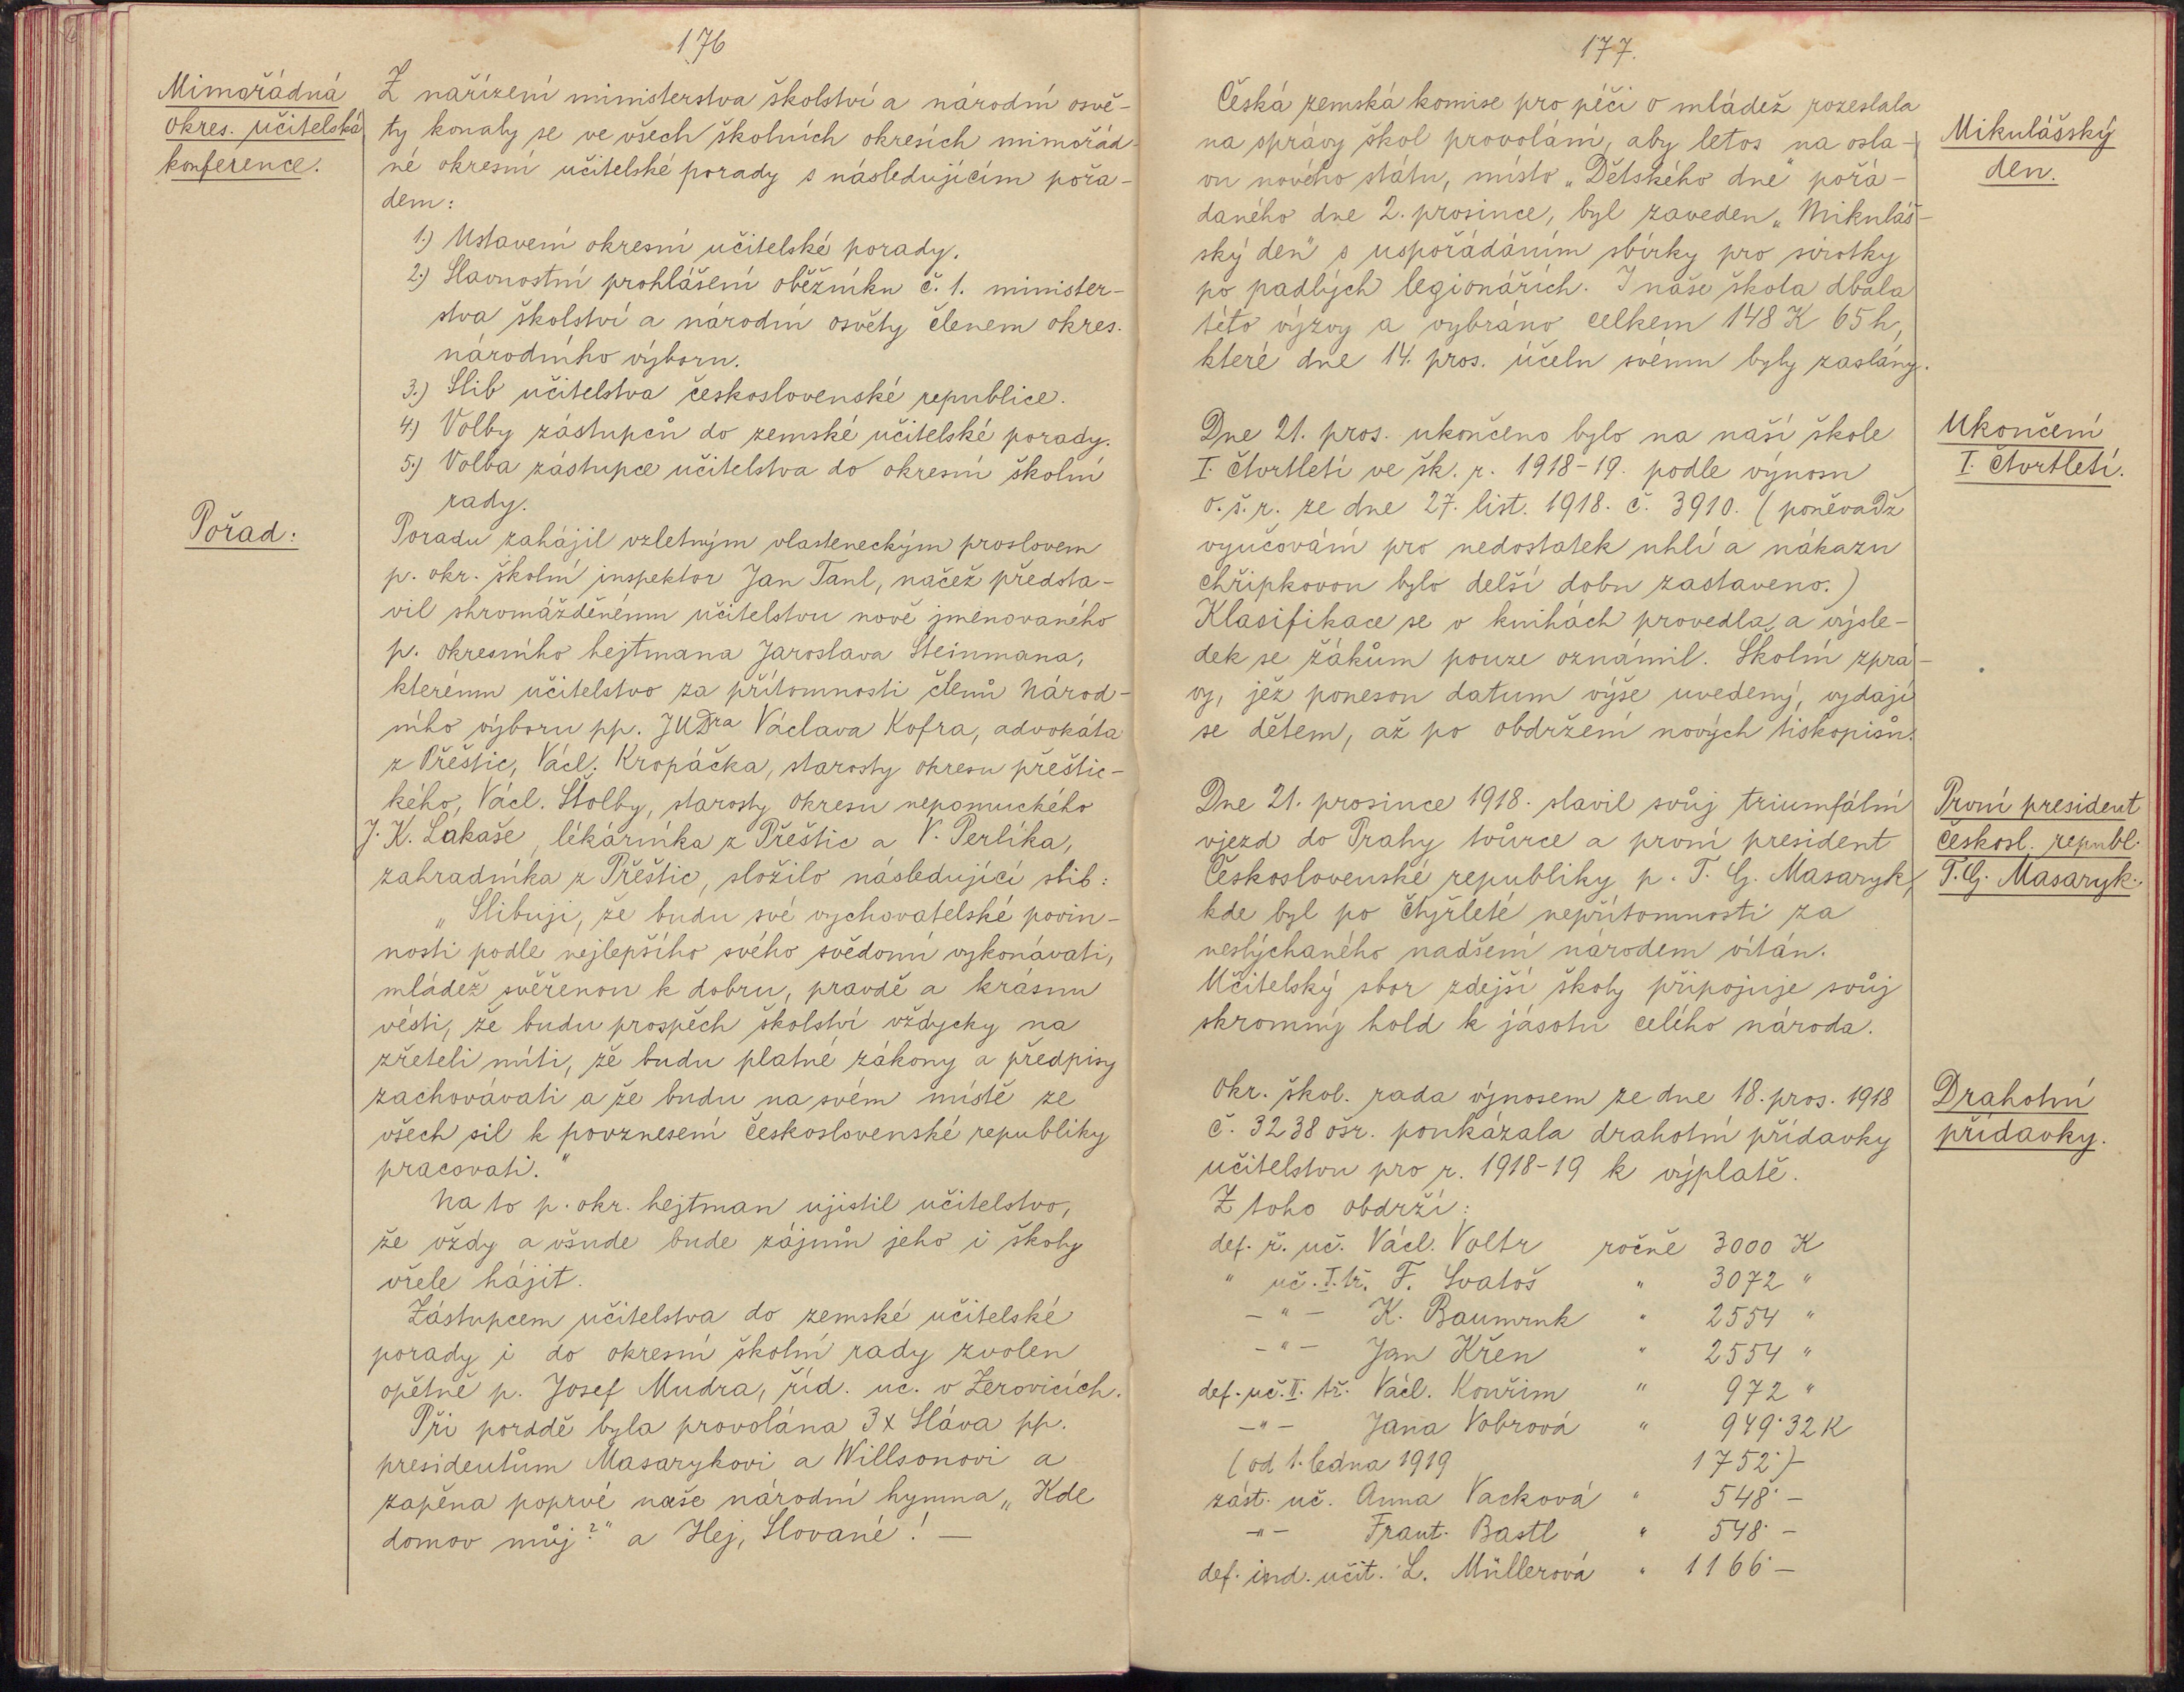 176
Mimořádná
okres. učitelská
konference.
Z nařízení ministerstva školství a národní osvě-
ty konaly se ve všech školních okresích mimořád-
né okresní učitelské porady s následujícím pořa-
dem:
1.) Ustavení okresní učitelské porady.
2.) Slavnostní prohlášení oběžníku č. 1. minister-
stva školství a národní osvěty členem okres.
národního výboru.
3.) Slib učitelstva československé republice.
4.) Volby zástupců do zemské učitelské porady.
5.) Volba zástupce učitelstva do okresní školní
rady.
Pořad:
Poradu zahájil vzletným vlasteneckým proslovem
p. okr. školní inspektor Jan Tanl, načež předsta-
vil shromážděnému učitelstvu nově jmenovaného
p. okresního hejtmana Jaroslava Steinmana,
kterému učitelstvo za přítomnosti členů Národ-
ního výboru pp. JUDra Václava Kofra, advokáta
z Přeštic, Václ. Kropáčka, starosty okresu přeštic-
kého, Václ. Štolby, starosty okresu nepomuckého
J. K. Lákaše, lékárníka z Přeštic a V. Perlíka,
zahradníka z Přeštic, složilo následující slib:
„Slibuji, že budu své vychovatelské povin-
nosti podle nejlepšího svého svědomí vykonávati,
mládež svěřenou k dobru, pravdě a krásnu
vésti, že budu prospěch školství vždycky na
zřeteli míti, že budu platné zákony a předpisy
zachovávati a že budu na svém místě ze
všech sil k povznesení československé republiky
pracovati."
Na to p. okr. hejtman ujistil učitelstvo,
že vždy a všude bude zájmů jeho i školy
vřele hájit.
Zástupcem učitelstva do zemské učitelské
porady i do okresní školní rady zvolen
opětně p. Josef Mudra, říd. uč. v Žerovicích.
Při poradě byla provolána 3x Sláva pp.
presidentům Masarykovi a Willsonovi a
zapěna poprvé naše národní hymna „Kde
domov můj?" a Hej, Slované! —
177.
Česká zemská komise pro péči o mládež rozeslala
na správy škol provolání, aby letos na osla-
vu nového státu, místo „Dětského dne" pořá-
daného dne 2. prosince, byl zaveden „Mikuláš-
ský den" s uspořádáním sbírky pro sirotky
po padlých legionářích. I naše škola dbala
této výzvy a vybráno celkem 148 K 65 h,
které dne 14. pros. účelu svému byly zaslány.
Mikulášský
den.
Dne 21. pros. ukončeno bylo na naší škole
I. čtvrtletí ve šk. r. 1918-19. podle výnosu
o. š. r. ze dne 27. list. 1918. č. 3910. (poněvadž
vyučování pro nedostatek uhlí a nákazu
chřipkovou bylo delší dobu zastaveno.)
Klasifikace se v knihách provedla, a výsle-
dek se žákům pouze oznámil. Školní zprá-
vy, jež ponesou datum výše uvedený, vydají
se dětem, až po obdržení nových tiskopisů.
Ukončení
I. čtvrtletí.
Dne 21. prosince 1918. slavil svůj triumfální
vjezd do Prahy tvůrce a první president
Československé republiky p. T. G. Masaryk,
kde byl po čtyřleté nepřítomnosti za
neslýchaného nadšení národem vítán.
Učitelský sbor zdejší školy připojuje svůj
skromný hold k jásotu celého národa.
První president
českosl. republ.
T. G. Masaryk.
Okr. škol. rada výnosem ze dne 18. pros. 1918
č. 3238 ošr. poukázala drahotní přídavky
učitelstvu pro r. 1918-19 k výplatě.
Z toho obdrží:
Drahotní
přídavky.
def. ř. uč. Václ. Voltr ročně 3000 K
" uč. I. tř. F. Svatoš " 3072 "
— " — K. Baumruk " 2554 "
— " — Jan Křen " 2554 "
def. uč. II. tř. Václ. Kouřim " 972 "
— " — Jana Vobrová " 949·32 K
(od 1. ledna 1919 1752·)-
zást. uč. Anna Vacková " 548·—
— " — Frant. Bastl " 548·—
def. ind. učit. L. Müllerová " 1166·—